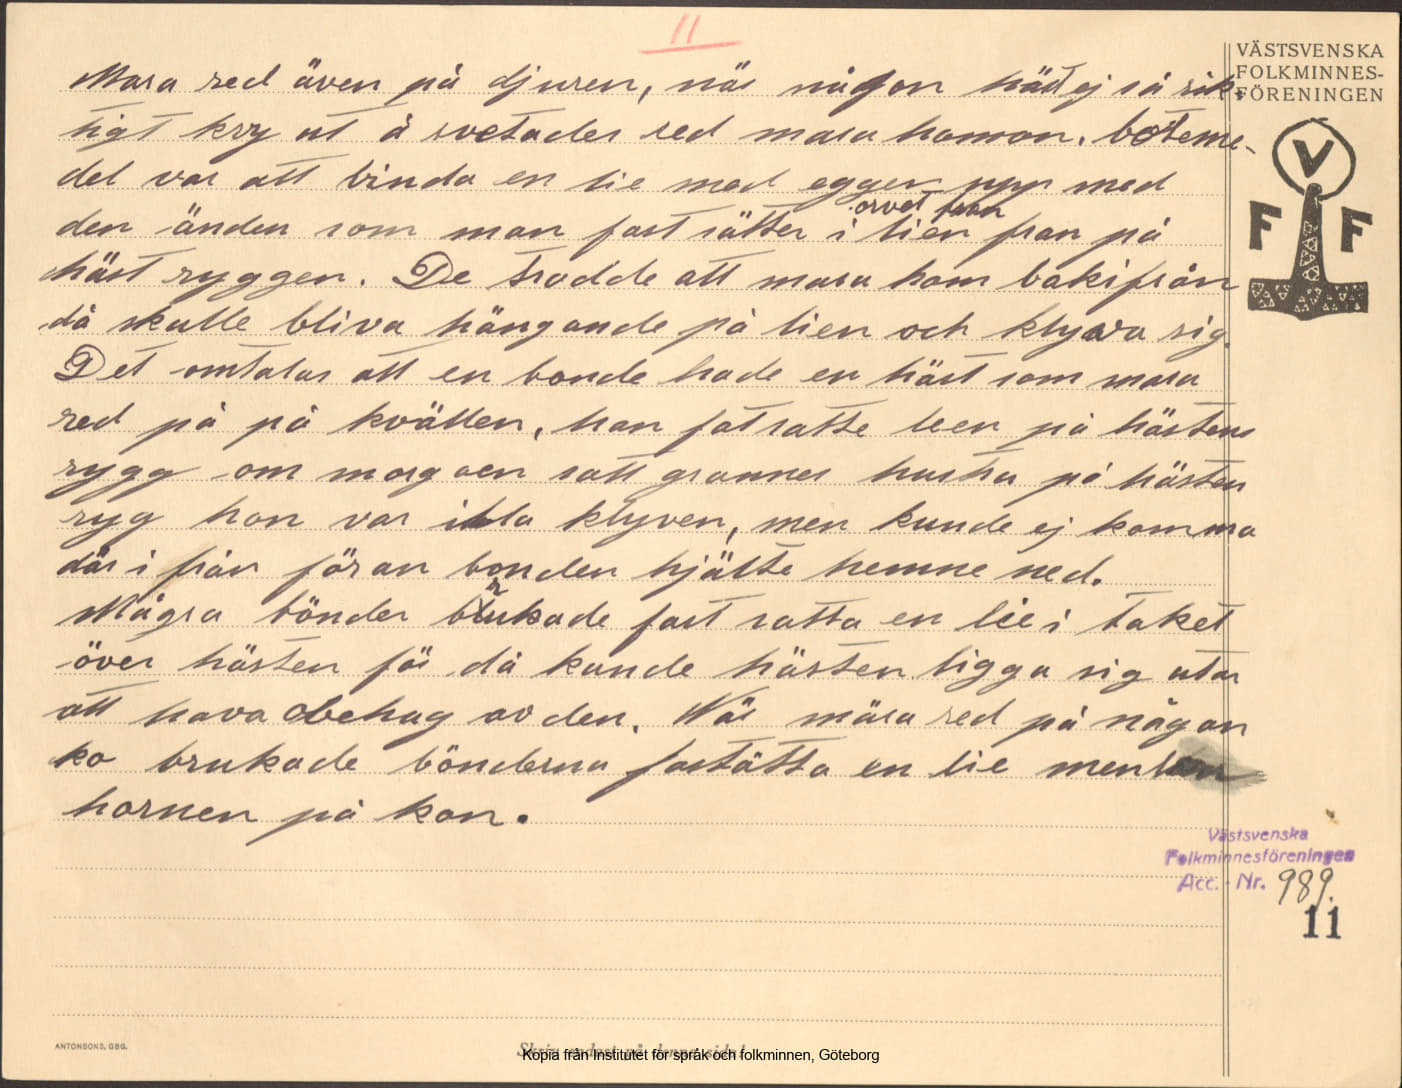 11
VÄSTSVENSKA
FOLKMINNES-
FÖRENINGEN
V
F F
Mara red även på djuren, när någon häst ej så rik-
tigt kry ut å svetades red mara honom. boteme-
del var att binda en lie med eggen upp med
orvet fran
den änden som man fast sätter i lien fran på
häst ryggen. De trodde att mara kom bakifrån
då skulle bliva hängande på lien och klyva sig.
Det omtalas att en bonde hade en häst som mara
red på på kvällen, han fatsatte leen på hästens
rygg om morgaen satt grannes hustru på hästen
ryg hon var illa klyven, men kunde ej komma
där i från föran bonden hjälte henne ned.
Några bönder brukade fast satta en lie i taket
över hästen för då kunde hästen ligga sig utan
att hava obehag av den. När mara red på någon
ko brukade bönderna fastätta en lie menlan
hornen på kon.
Västsvenska
Folkminnesföreningen
Acc. - Nr. 989.
11
ANTONSONS, GBG.
Skriv endast på denna sida!
Kopia från Institutet för språk och folkminnen, Göteborg